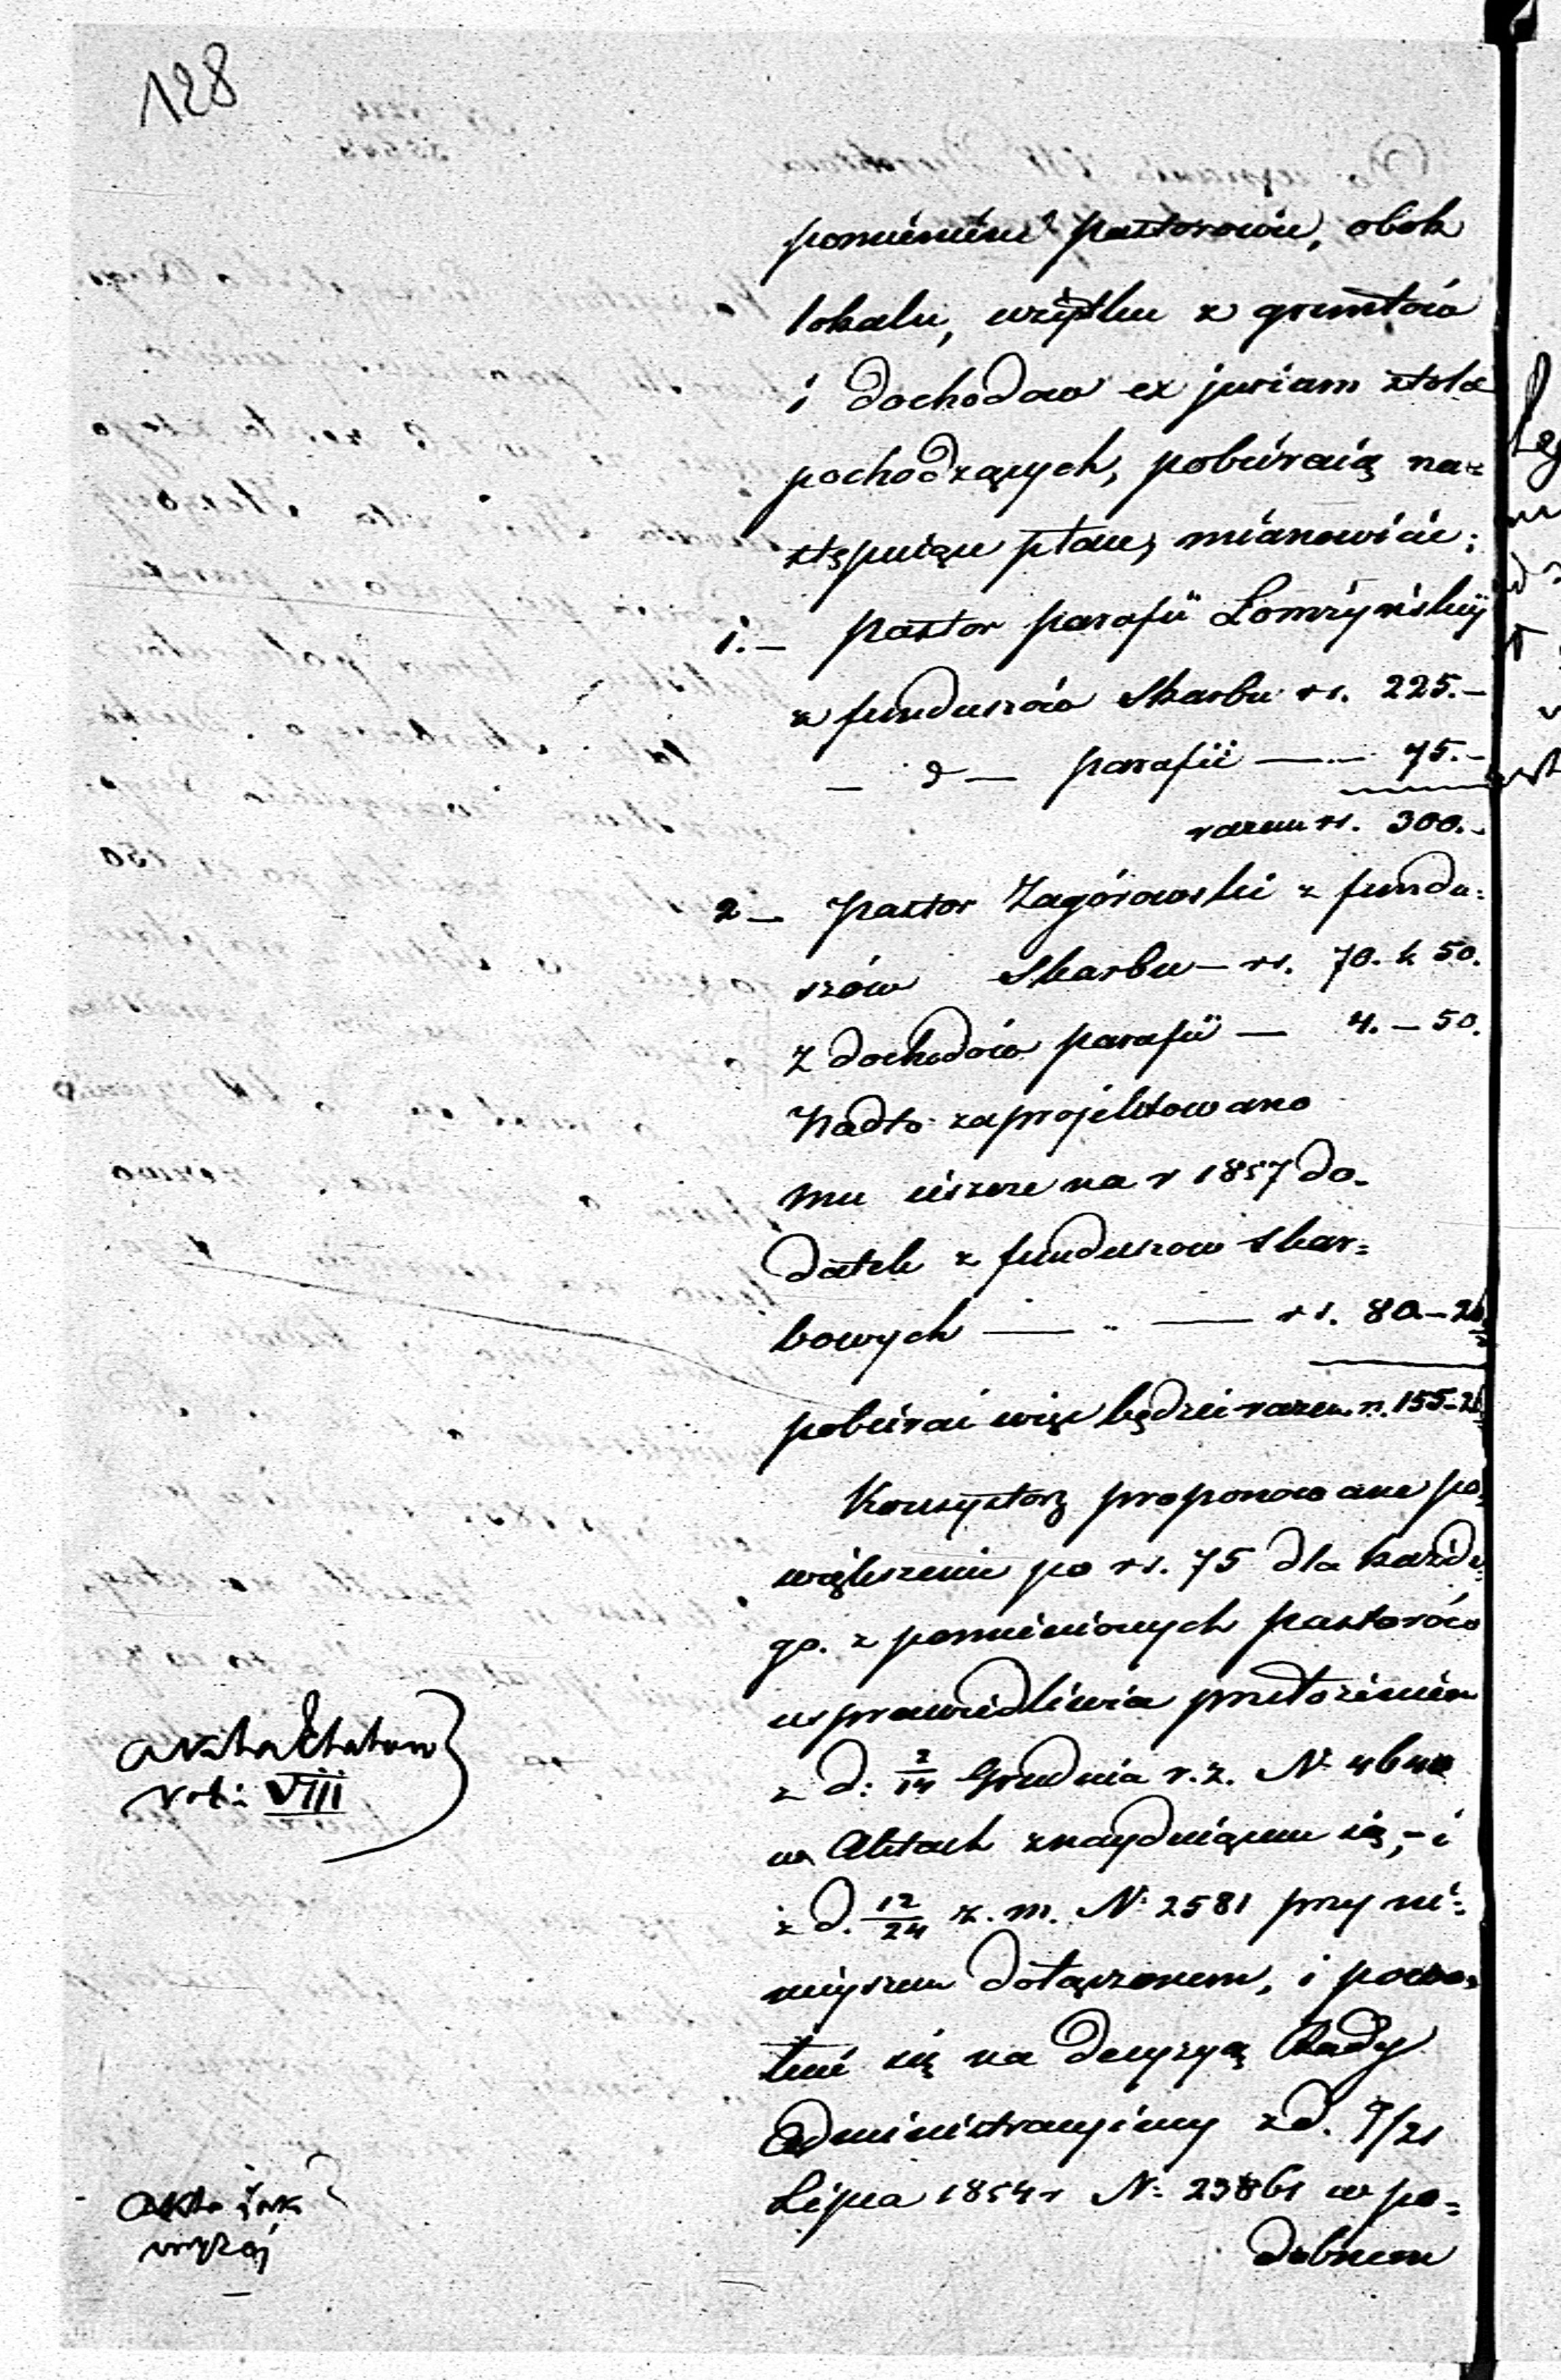 128
pomienieni pastorowie, obok
lokalu, użytku z gruntów
i dochodow ex jurium stolæ
pochodzących, pobieraią na=
stępuiące płace, mianowicie:
1.— Pastor parafii Łomżyńskiej
z funduszów Skarbu rs. 225.—
— d — parafii —— 75.—
razem rs. 300.—
2 — Pastor Zagórowski z fundu=
szów Skarbu — rs. 70. k 50.
Z dochodów parafii — 4. — 50.
Nadto zaprojektowano
mu ieszcze na r 1857 do-
datek z funduszow skar=
bowych —— „ —— rs. 80.—
pobierać więc będzie razem rs. 155
Konsystorz proponowane po=
większenie po rs. 75 dla każde=
go. z pomienionych Pastorów
usprawiedliwia przełożeniem
z d: 2/14 Grudnia r. z. N.
w Aktach znayduiącem się, — i
z d. 12/24 z. m. N: 2581 przy ni=
nieyszem dołączonem, i powo=
łuie się na decyzyą Rady
Administracyiney z d. 9/21
Lipca 1854 r N: 23861 w po=
dobnem
Akta Etatow
Vol: VIII
Akta iak
wyżej